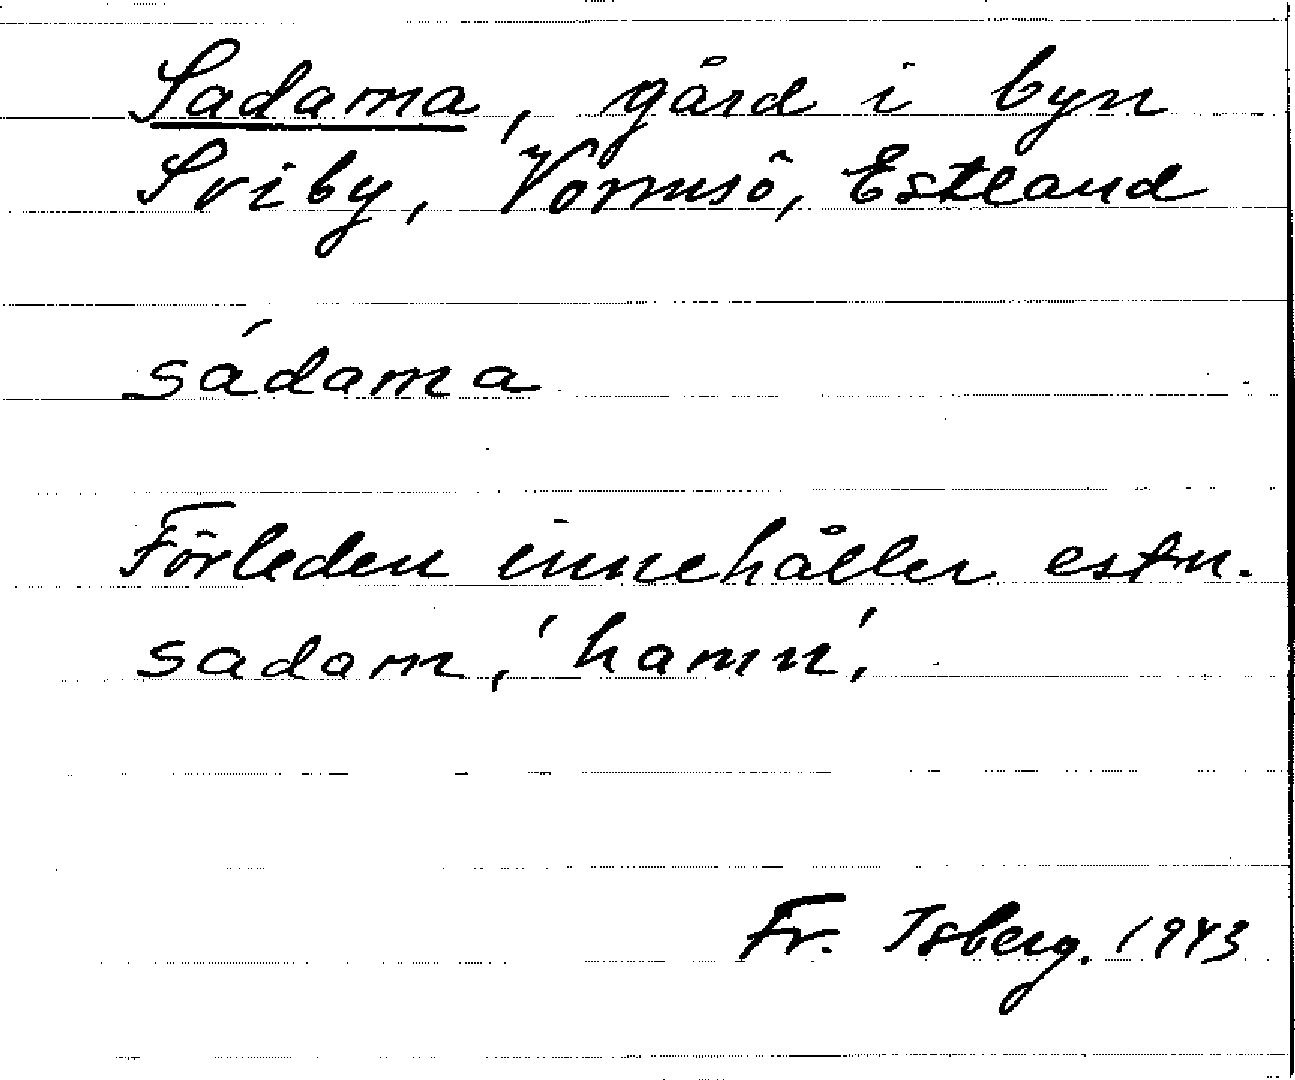 Sadama, gård i byn
Sviby, Vormsö, Estland
sádama
Förleden innehåller estn.
sadam, 'hamn',
Fr. Isberg. 1943